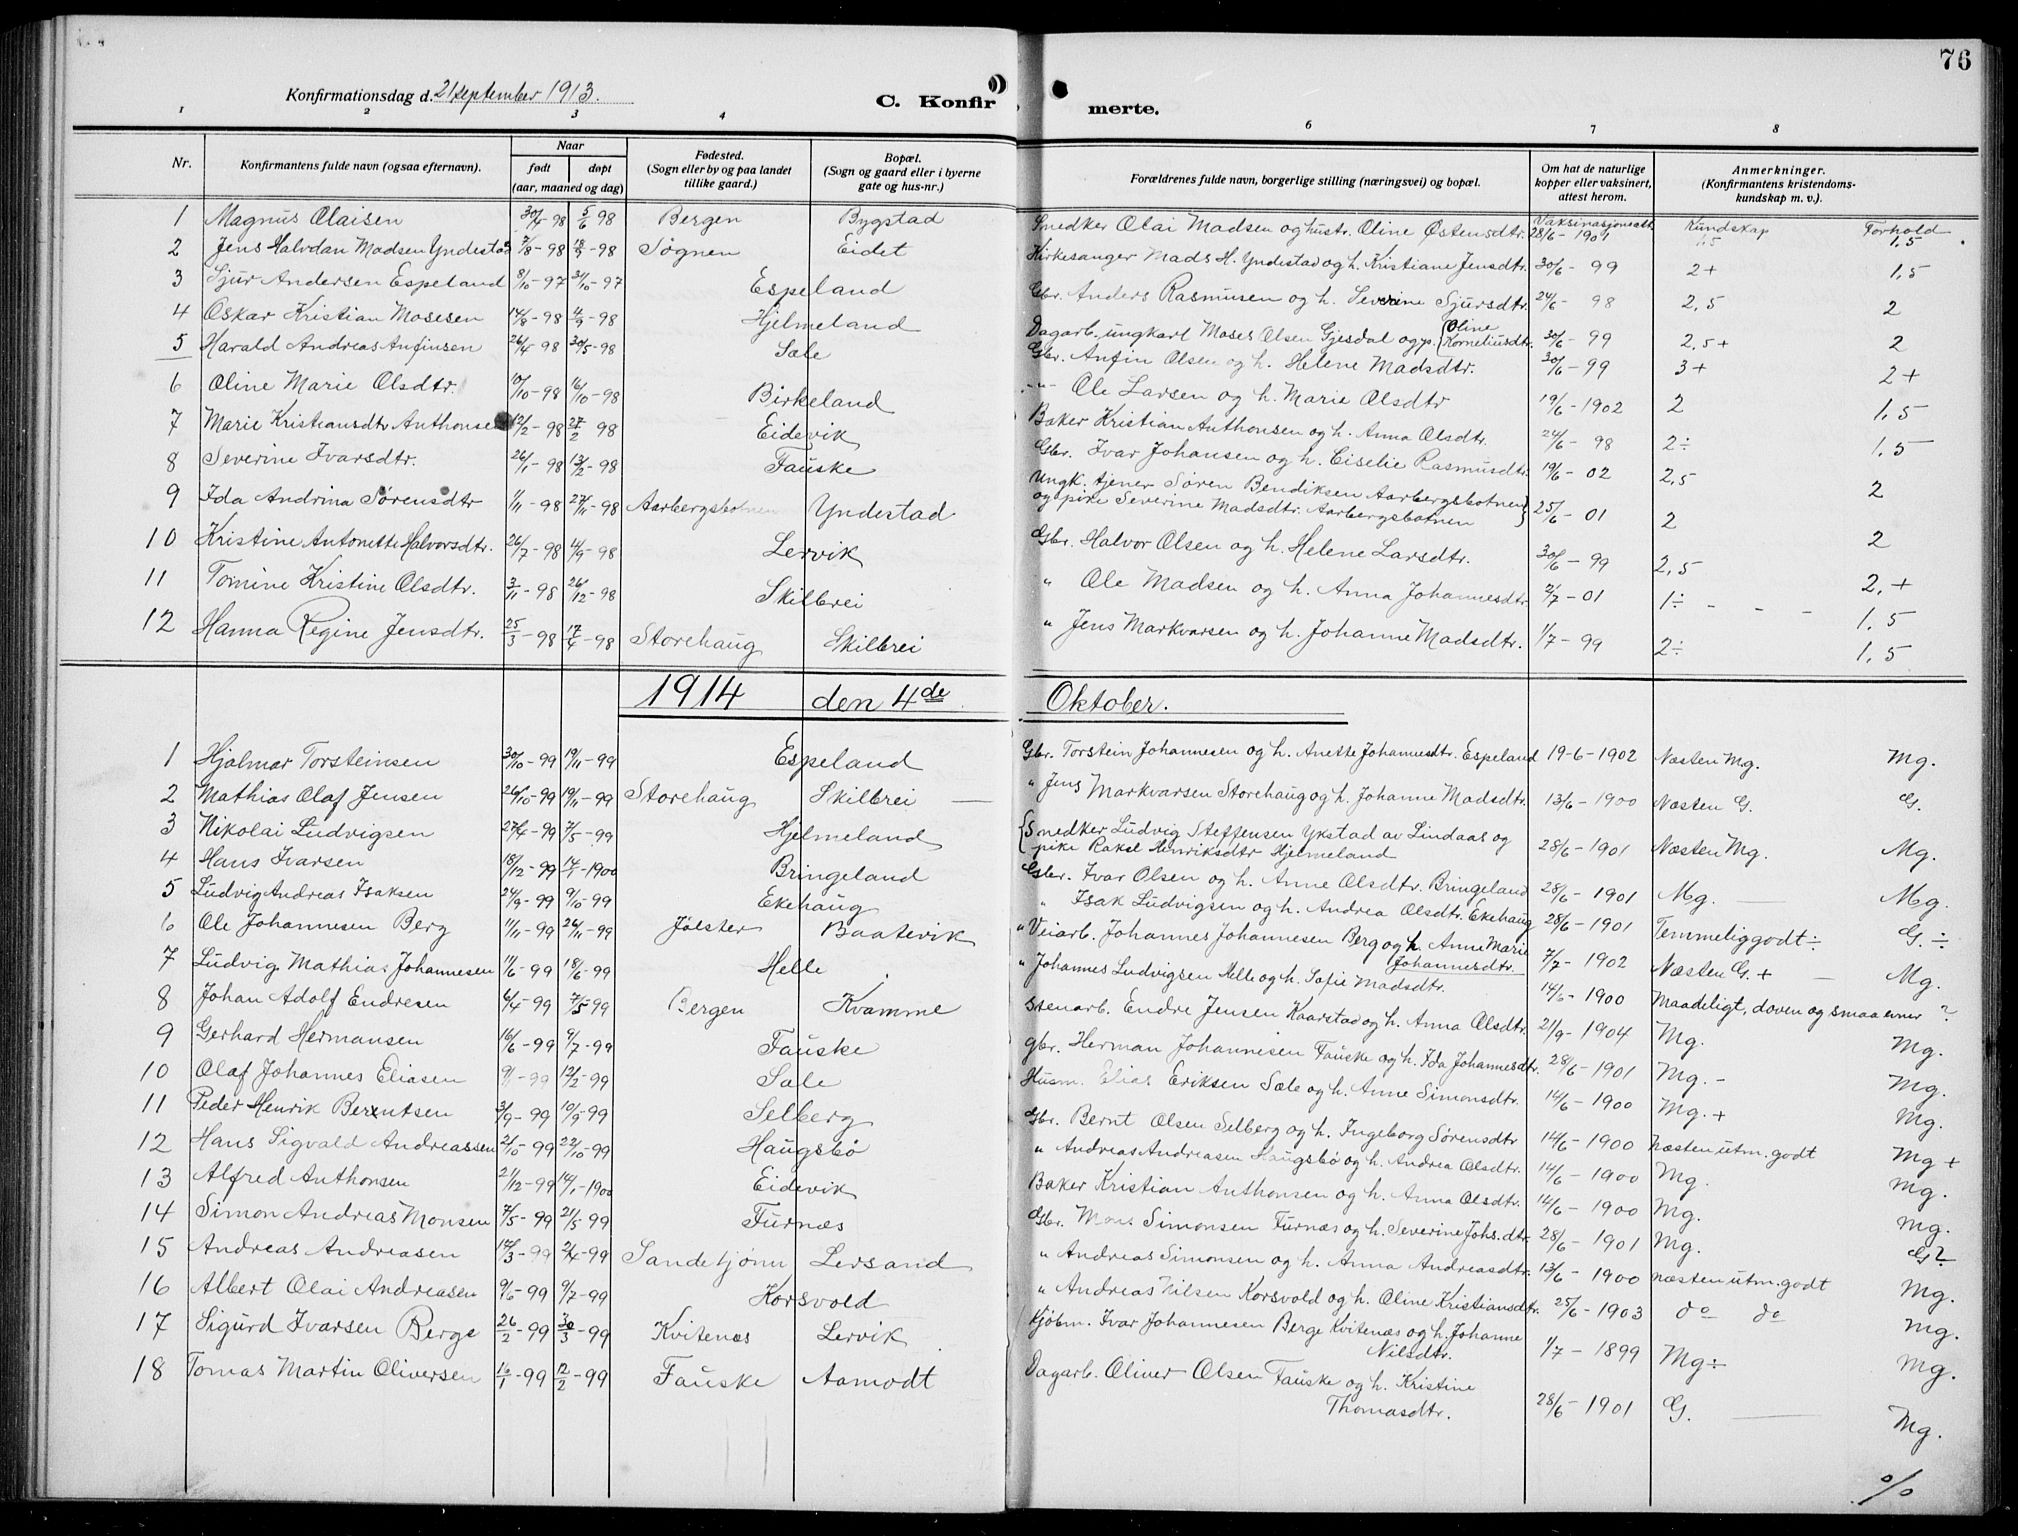 76
Konfirmationsdag d. 21 september 1913.
C. Konfirmerte.
1 2 3 4 6 7 8
Nr.
Konfirmantens fulde navn (ogsaa efternavn).
Naar
født døpt
(aar, maaned og dag)
Fødested.
(Sogn eller by og paa landet
tillike gaard.)
Bopæl.
(Sogn og gaard eller i byerne
gate og hus-nr.)
Forældrenes fulde navn, borgerlige stilling (næringsvei) og bopæl.
Om hat de naturlige
kopper eller vaksinert,
attest herom.
Anmerkninger.
(Konfirmantens kristendoms-
kundskap m. v.).
Vaksinasjonsatt. Kundskap Forhold
1 Magnus Olaisen 30/4-98 5/6 98 Bergen Bygstad Snedker Olai Madsen og hustr. Oline Østensdtr. 28/6-1901 1,5 1,5
2 Jens Halvdan Madsen Yndestad 7/8-98 18/9-98 Søgnen Eidet Kirkesanger Mads H. Yndestad og h. Kristiane Jensdtr. 30/6-99 2+ 1,5
3 Sjur Andersen Espeland 8/10-97 31/10-97 Espeland Gbr. Anders Rasmusen og h. Severine Sjursdtr. 24/6-98 2,5 2
4 Oskar Kristian Mosesen 14/8-98 4/9-98 Hjelmeland Dagarb. ungkarl Moses Olsen Gjesdal og p. {Oline Korneliusdtr. 30/6-99 2,5+ 2
5 Harald Andreas Anfinsen 26/4-98 30/5-98 Sæle Gbr. Anfin Olsen og h. Helene Madsdtr. 30/6-99 3+ 2+
6 Oline Marie Olsdtr. 10/10-98 16/10-98 Birkeland -"- Ole Larsen og h. Marie Olsdtr 19/6-1902 2 1,5
7 Marie Kristiansdtr Anthonsen 12/2-98 27/2 98 Eidevik Baker Kristian Anthonsen og h. Anna Olsdtr. 24/6-98 2÷ 1,5
8 Severine Ivarsdtr. 26/1-98 13/2-98 Fauske Gbr. Ivar Johansen og h. Ciselie Rasmusdtr. 19/6-02 2,5 2
9 Ida Andrina Sørensdtr 1/11-98 27/11-98 Aarbergsbotnen Yndestad Ungk. tjener Søren Bendiksen Aarbergsbotnen
og pike Severine Madsdtr. Aarbergsbotnen} 25/6-01 2 2
10 Kristine Antonette Halvorsdtr. 26/7-98 14/9-98 Lervik Gbr. Halvor Olsen og h. Helene Larsdtr. 30/6-99 2,5 2,+
11 Tomine Kristine Olsdtr. 3/11-98 26/12-98 Skilbrei " Ole Madsen og h. Anna Johannesdtr. 2/7-01 1÷ - - - 1,5
12 Hanna Regine Jensdtr. 25/3-98 17/4-98 Storehaug Skilbrei " Jens Markvarsen og h. Johanne Madsdtr. 1/7-99 2÷ 1,5
1914 den 4de Oktober.
1 Hjalmar Torsteinsen 30/10-99 19/11-99 Espeland Gbr. Torstein Johannesen og h. Anette Johannesdtr. Espeland 19-6-1902 Næsten Mg. Mg.
2 Mathias Olaf Jensen 26/10-99 19/11-99 Storehaug Skilbrei " Jens Markvarsen Storehaug og h. Johanne Madsdtr. 13/6-1900 Næsten G. G.
3 Nikolai Ludvigsen 27/4-99 7/5-99 Hjelmeland {Snedker Ludvig Steffensen Ykstad av Lindaas og
pike Rakel Henriksdtr Hjelmeland 28/6-1901 Næsten Mg. Mg.
4 Hans Ivarsen 18/12-99 14/1-1900 Bringeland Gbr. Ivar Olsen og h. Anne Olsdtr. Bringeland 28/6-1901 Mg. Mg.
5 Ludvig Andreas Isaksen 24/9-99 9/10-99 Ekehaug " Isak Ludvigsen og h. Andrea Olsdtr. Ekehaug 28/6-1901 Temmelig godt÷ G.÷
6 Ole Johannesen Berg 11/11-99 26/11-99 Jølster Baatevik " Veiarb. Johannes Johannesen Berg og h. Anne Marie
Johannesdtr. 7/7-1902 Næsten G.+ Mg.
7 Ludvig Mathias Johannesen 11/6-99 18/6-99 Helle " Johannes Ludvigsen Helle og h. Sofie Madsdtr. 14/6-1900 Maadeligt, doven og smaa evner ?
8 Johan Adolf Endresen 6/4-99 7/5-99 Bergen Kvamme Stenarb. Endre Jensen Kaarstad og h. Anna Olsdtr. 21/9-1904 Mg. Mg.
9 Gerhard Hermansen 16/6-99 9/7-99 Fauske gbr. Herman Johannesen Fauske og h. Ida Johannesdtr. 28/6-1901 Mg. - Mg.
10 Olaf Johannes Eliasen 9/1-99 12/2-99 Sæle Husm. Elias Eriksen Sæle og h. Anne Simonsdtr. 14/6-1900 Mg.+ Mg.
11 Peder Henrik Berntsen 3/9-99 10/9-99 Selberg Gbr. Bernt Olsen Selberg og h. Ingeborg Sørensdtr 14/6-1900 næsten utm. godt Mg+
12 Hans Sigvald Andreassen 2/10-99 22/10-99 Haugsbø " Andreas Andreasen Haugsbø og h. Andrea Olsdtr. 14/6-1900 Mg. Mg.
13 Alfred Anthonsen 21/12-99 14/1-1900 Eidevik Baker Kristian Anthonsen og h. Anna Olsdtr. 14/6-1900 Mg. Mg.
14 Simon Andreas Monsen 7/5-99 21/5 99 Furnæs Gbr. Mons Simonsen Furnæs og h. Severine Johs.dtr. 28/6-1901 Mg. G?
15 Andreas Andreasen 14/3-99 2/4-99 Sandetjønn Lersand " Andreas Simonsen og h. Anna Andreasdtr. 13/6-1900 næsten utm. godt Mg.
16 Albert Olai Andreasen 9/6-99 9/7-99 Korsvold " Andreas Nilsen Korsvold og h. Oline Kristiansdtr. 25/6-1903 do do Mg.
17 Sigurd Ivarsen Berge 26/2-99 30/3-99 Kvitenæs Lervik Kjøbm. Ivar Johannesen Berge Kvitenæs og h. Johanne
Nilsdtr. 1/7-1899 Mg÷ Mg.
18 Tomas Martin Oliversen 16/1-99 12/2-99 Fauske Aamodt Dagarb. Oliver Olsen Fauske og h. Kristine
Thomasdtr. 28/6-1901 G. Mg.
o/o